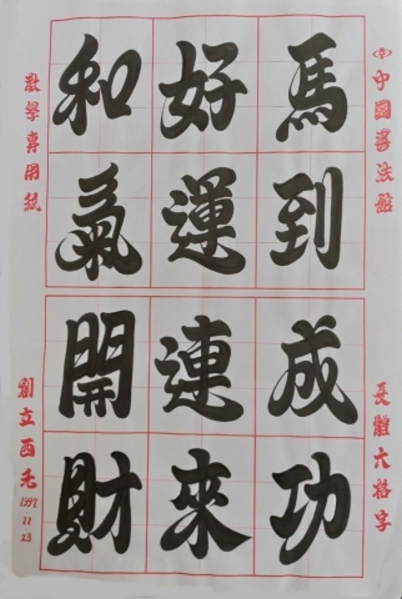 中國書法館
長體六格字
馬到成功
好運連來
和氣開財
教學專用紙
創立西元
1997
11
23